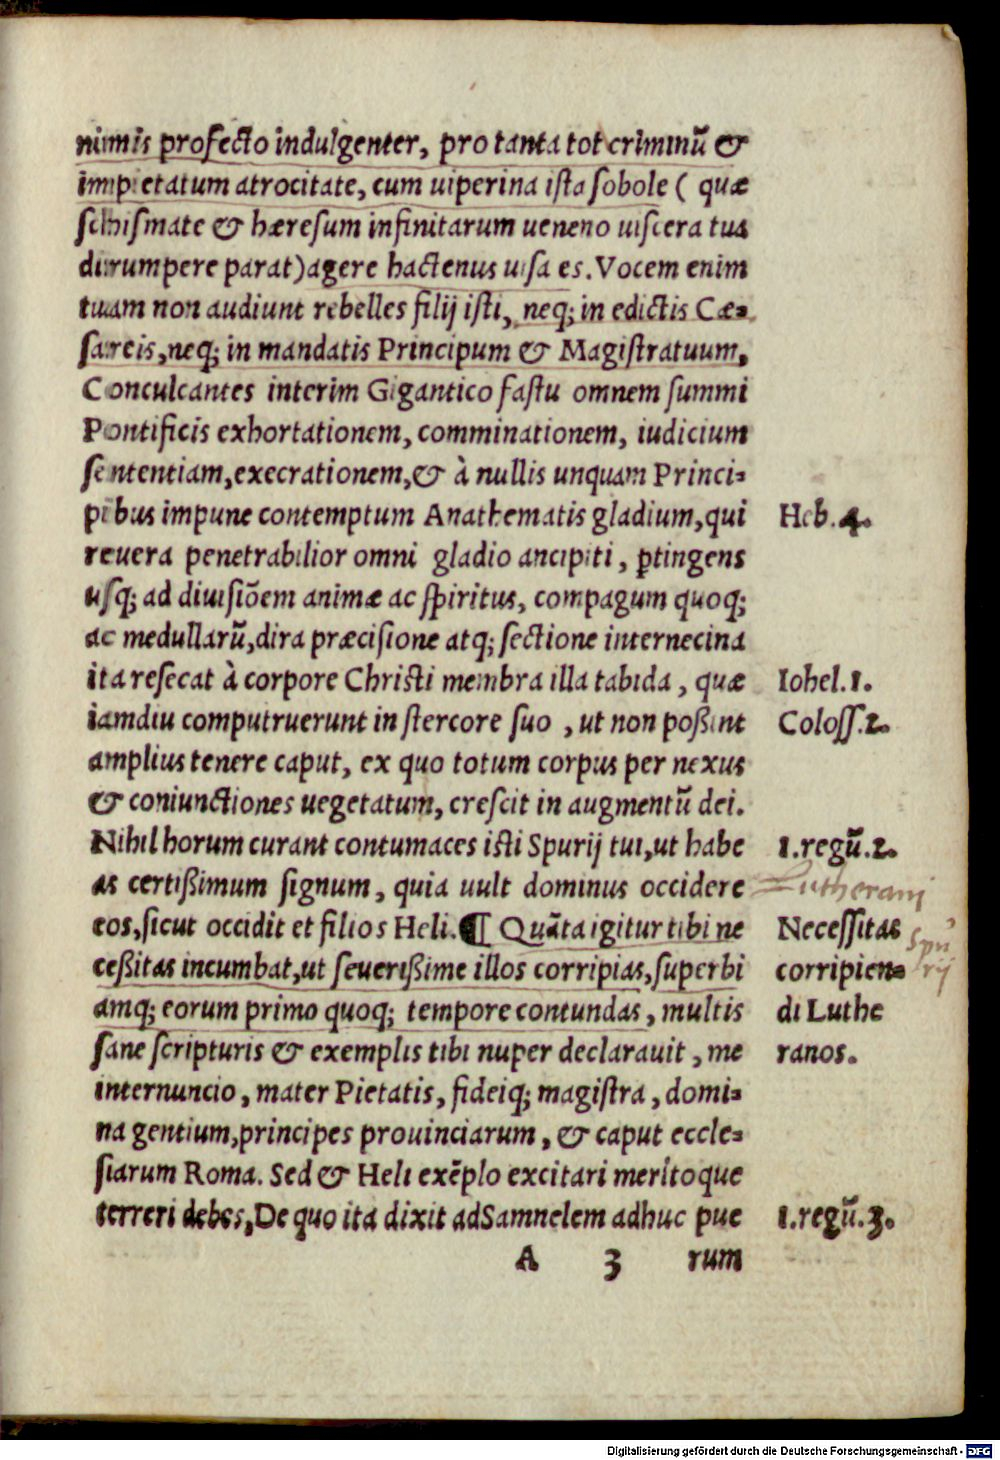 nimis profecto indulgenter, pro tanta tot criminũ &
impietatum atrocitate, cum uiperina ista sobole ( quæ
schismate & hæresum infinitarum ueneno uiscera tua
dirumpere parat) agere hactenus uisa es. Vocem enim
tuam non audiunt rebelles filij isti, neq; in edictis Cæ-
sareis, neq; in mandatis Principum & Magistratuum,
Conculcantes interim Gigantico fastu omnem summi
Pontificis exhortationem, comminationem, iudicium
sententiam, execrationem, & à nullis unquam Princi-
pibus impune contemptum Anathematis gladium, qui
Heb. 4.
reuera penetrabilior omni gladio ancipiti, ꝑtingens
usq; ad diuisiõem animæ ac spiritus, compagum quoq;
ac medullarũ, dira præcisione atq; sectione internecina
ita resecat à corpore Christi membra illa tabida, quæ
Iohel. 1.
iamdiu computruerunt in stercore suo, ut non poßint
Coloss. 2.
amplius tenere caput, ex quo totum corpus per nexus
& coniunctiones uegetatum, crescit in augmentũ dei.
Nihil horum curant contumaces isti Spurij tui, ut habe
1. regũ. 2.
as certißimum signum, quia uult dominus occidere
Lutherani
eos, sicut occidit et filios Heli. ¶ Quãta igitur tibi ne
Necessitas
Spu
ceßitas incumbat, ut seuerißime illos corripias, superbi
corripien-
rij
amq; eorum primo quoq; tempore contundas, multis
di Luthe
sane scripturis & exemplis tibi nuper declarauit, me
ranos.
internuncio, mater Pietatis, fideiq; magistra, domi-
na gentium, principes prouinciarum, & caput eccle-
siarum Roma. Sed & Heli exẽplo excitari merito que
terreri debes, De quo ita dixit ad Samnelem adhuc pue
1. regũ. 3.
A 3 rum
Digitalisierung gefördert durch die Deutsche Forschungsgemeinschaft - DFG